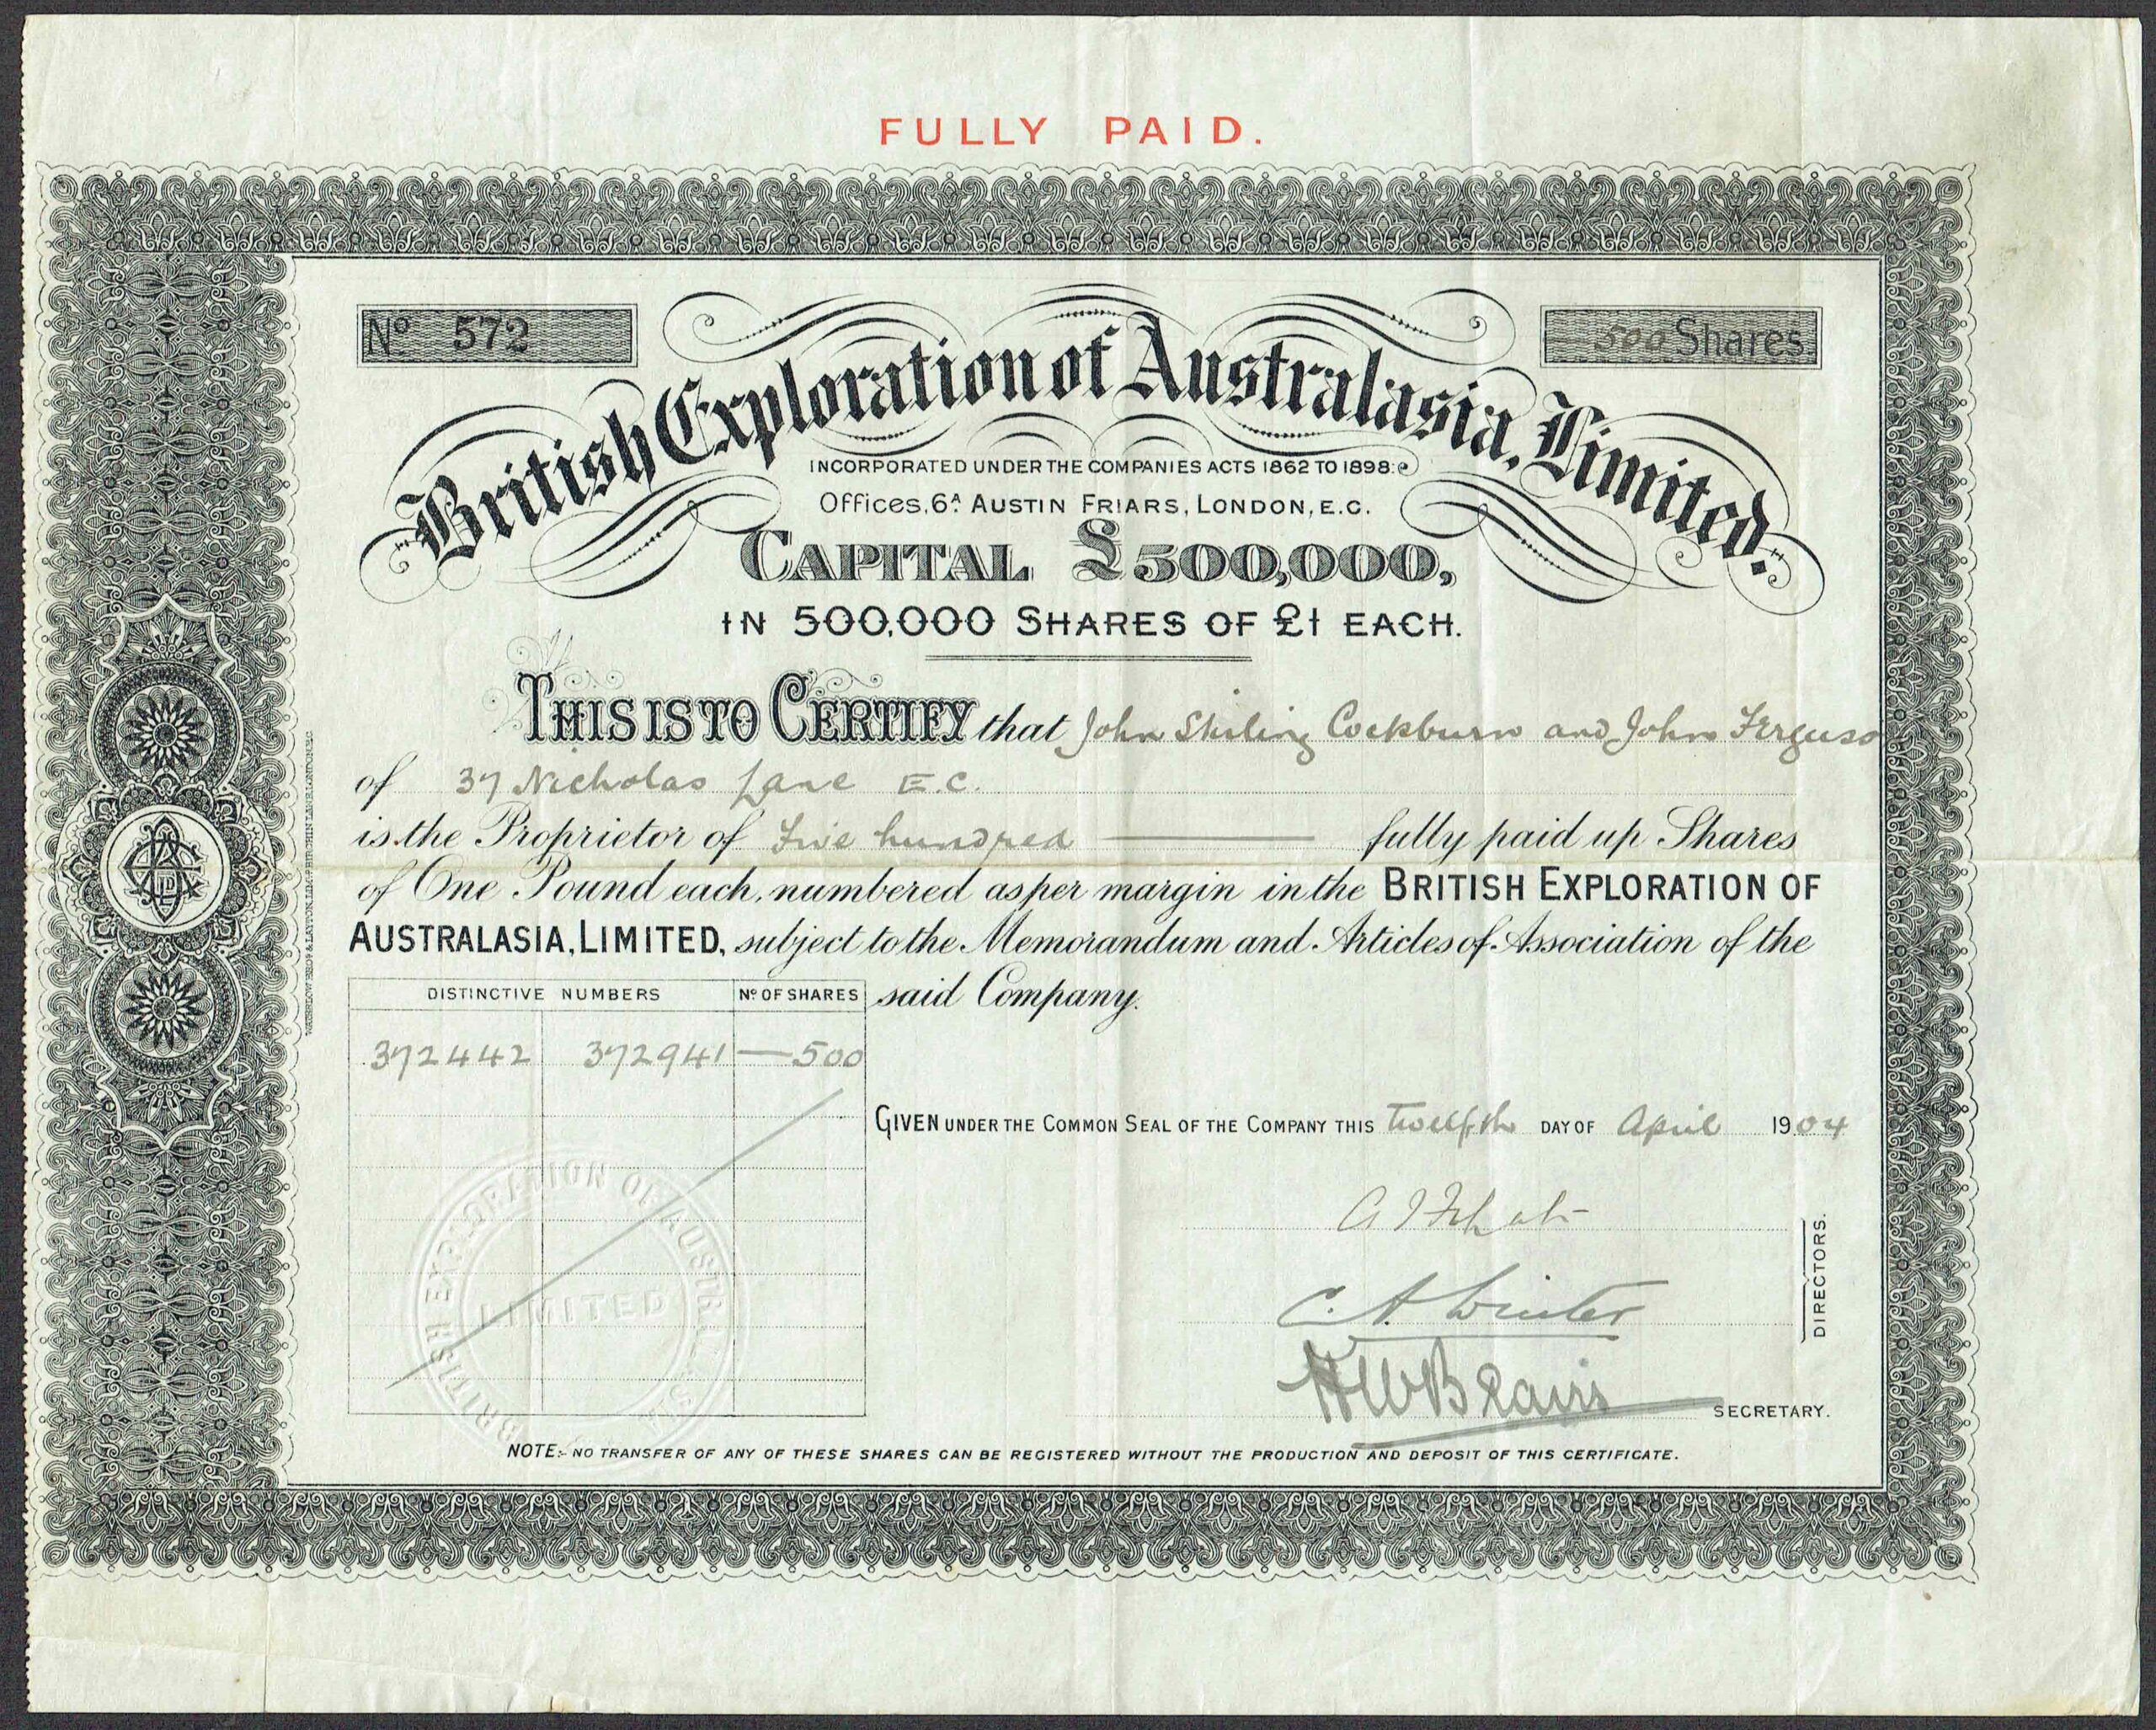 FULLY PAID.
No 572
500 Shares
British Exploration of Australasia, Limited.
INCORPORATED UNDER THE COMPANIES ACTS 1862 TO 1898.
Offices, 6A. AUSTIN FRIARS, LONDON, E.C.
CAPITAL £500,000,
IN 500,000 SHARES OF £1 EACH.
THIS IS TO CERTIFY that John Stirling Cockburn and John Ferguso
of 37 Nicholas Lane E.C.
is the Proprietor of Five hundred fully paid up Shares
of One Pound each, numbered as per margin in the BRITISH EXPLORATION OF
AUSTRALASIA, LIMITED, subject to the Memorandum and Articles of Association of the
said Company.
DISTINCTIVE NUMBERS No OF SHARES
372442 372941 — 500
GIVEN UNDER THE COMMON SEAL OF THE COMPANY THIS Twelfth DAY OF April 1904
C. A. Winter
DIRECTORS.
SECRETARY.
BRITISH EXPLORATION OF AUSTRALASIA
LIMITED
NOTE:- NO TRANSFER OF ANY OF THESE SHARES CAN BE REGISTERED WITHOUT THE PRODUCTION AND DEPOSIT OF THIS CERTIFICATE.
WATERLOW BROS & LAYTON, LIM. BIRCHIN LANE, LONDON, E.C.